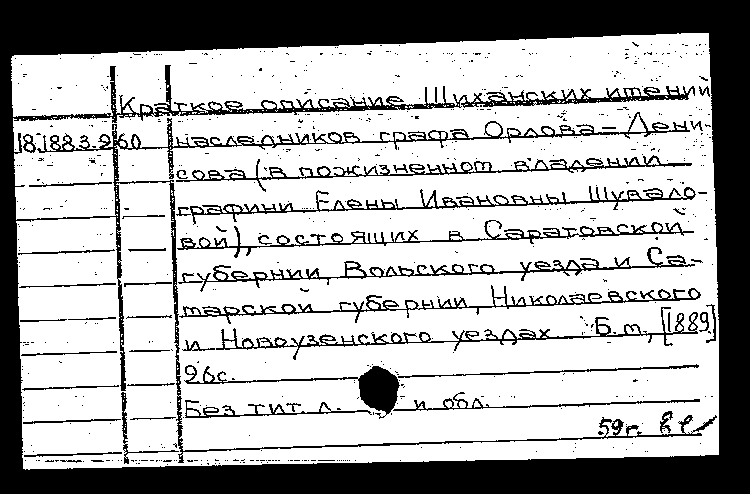 Краткое описание Шиханских имений
18.188.3.260 наследников графа Орлова-Дени-
сова (в пожизненном владении
графини Елены Ивановны Шувало-
вой), состоящих в Саратовской
губернии, Вольского уезда и Са-
марской губернии, Николаевского
и Новоузенского уездах. Б.м., [1889]
96с.
Без тит. л. и обл.
59г.